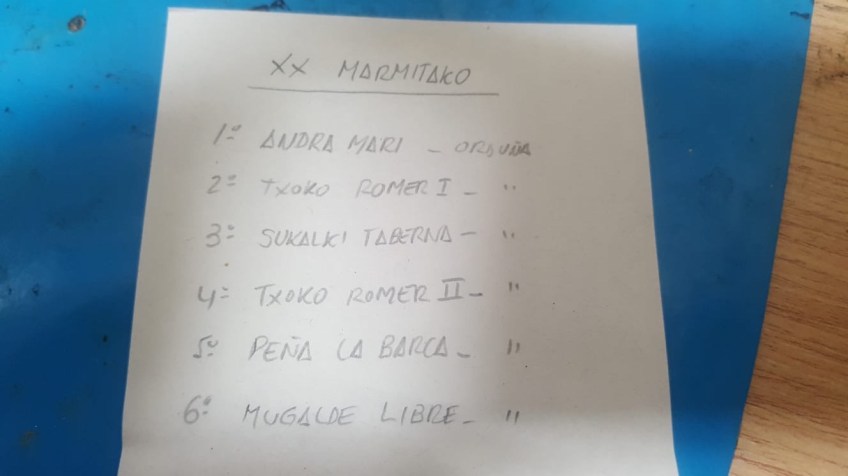 XX MARMITAKO
1º ANDRA MARI - ORDUÑA
2º TXOKO ROMER I - "
3º SUKALKI TABERNA - "
4º TXOKO ROMER II - "
5º PEÑA LA BARCA - "
6º MUGALDE LIBRE - "